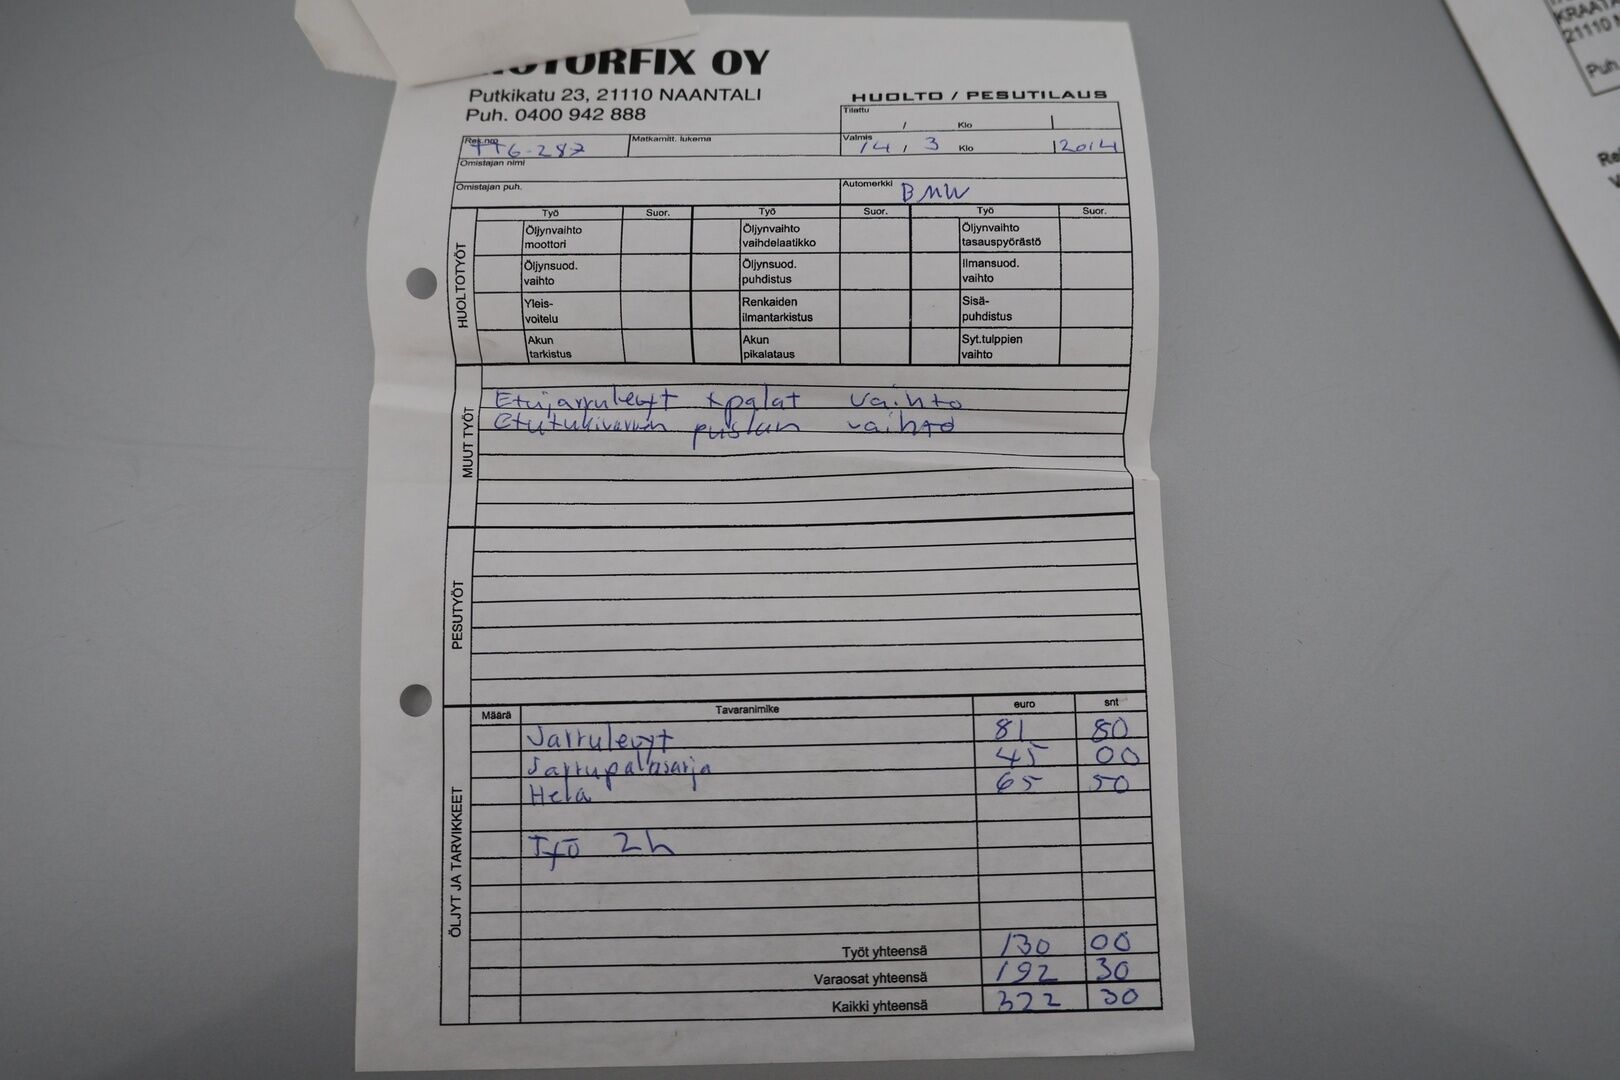 MOTORFIX OY
Putkikatu 23, 21110 NAANTALI
Puh. 0400 942 888
HUOLTO / PESUTILAUS
Tilattu / Klo
Rek.nro TTG-287 Matkamitt. lukema Valmis 14 / 3 Klo 2014
Omistajan nimi
Omistajan puh. Automerkki BMW
HUOLTOTYÖT
Työ Suor. Työ Suor. Työ Suor.
Öljynvaihto moottori Öljynvaihto vaihdelaatikko Öljynvaihto tasauspyörästö
Öljynsuod. vaihto Öljynsuod. puhdistus Ilmansuod. vaihto
Yleis- voitelu Renkaiden ilmantarkistus Sisä- puhdistus
Akun tarkistus Akun pikalataus Syt.tulppien vaihto
MUUT TYÖT
Etujarrulevyt + palat vaihto
Etutukivarren puslan vaihto
PESUTYÖT
ÖLJYT JA TARVIKKEET
Määrä Tavaranimike euro snt
Jarrulevyt 81 80
Jarrupalasarja 45 00
Hela 65 50
Työ 2h
Työt yhteensä 130 00
Varaosat yhteensä 192 30
Kaikki yhteensä 322 30
KRAATA
21110
Puh.